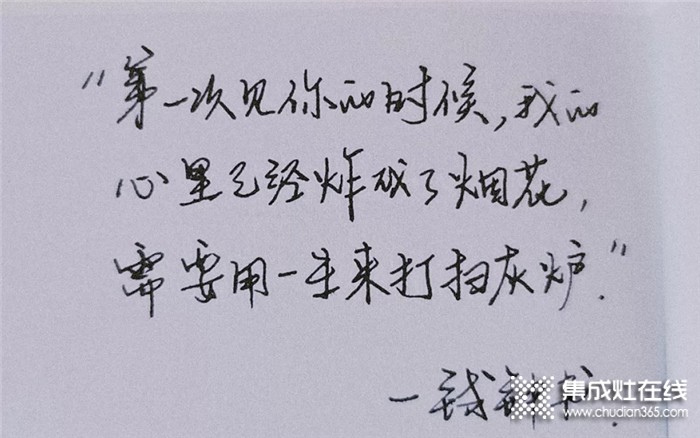 “第一次见你的时候，我的
心里已经炸成了烟花，
需要用一生来打扫灰炉.”
一钱钟书
集成灶在线
www.chudian365.com